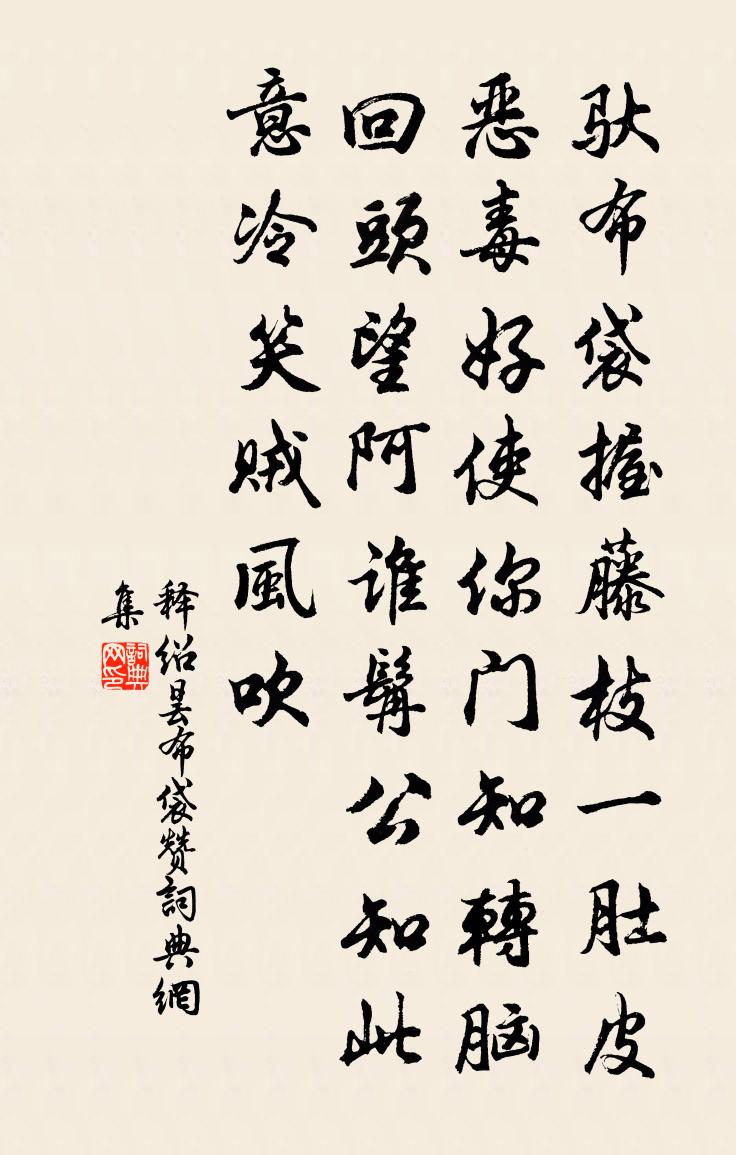 馱布袋握藤枝一肚皮
恶毒好使你门知轉脑
回頭望阿谁髯公知此
意冷笑贼風吹
释绍昙布袋赞詞典網
集
詞典网印